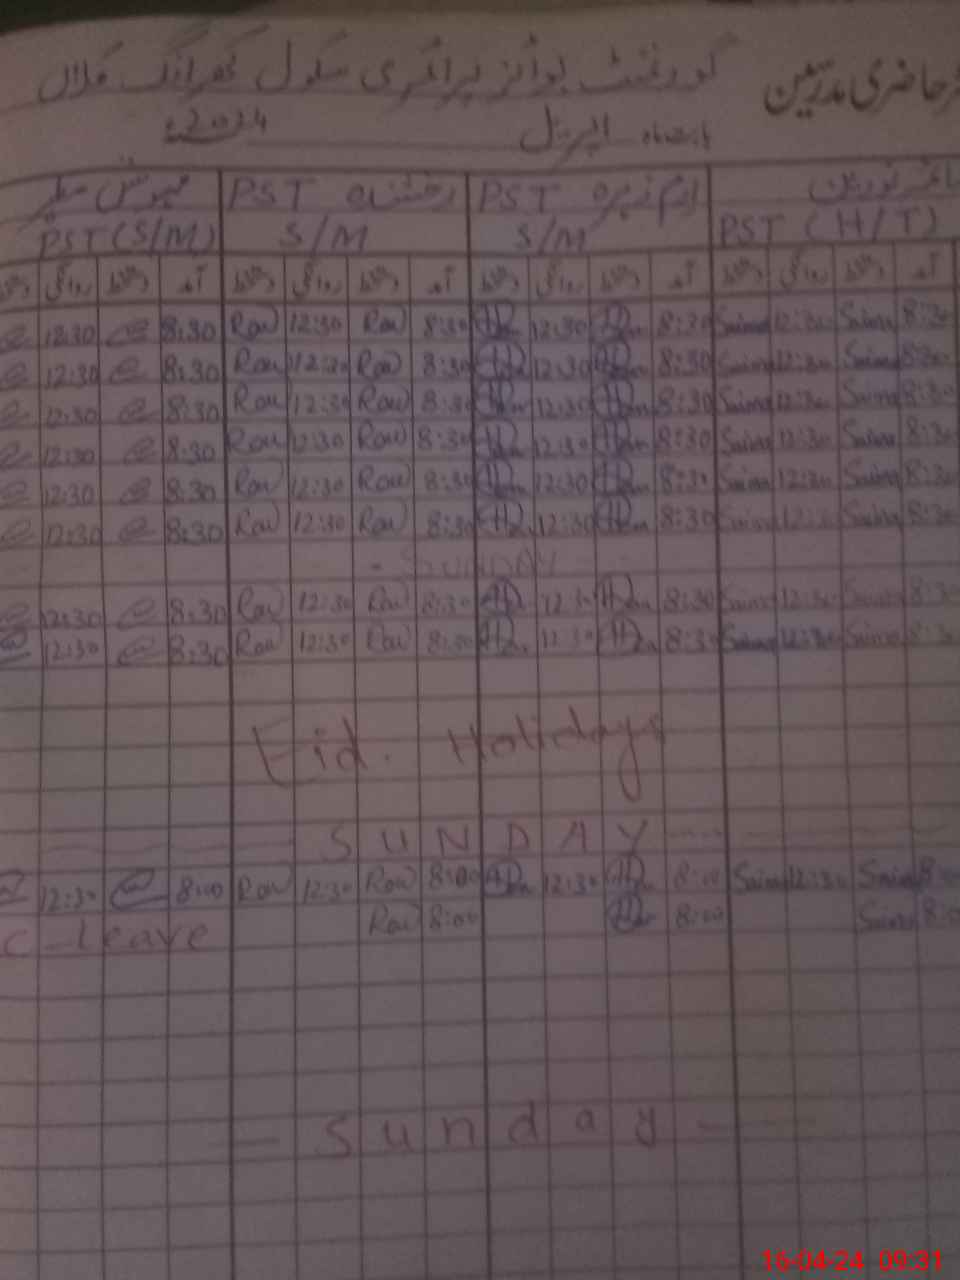 حاضری مدرسین گورنمنٹ بوائز پرائمری سکول کلاں
بابت ماہ اپریل 2024ء
PST رخشندہ PST
PST (H/T) S/M S/M PST (S/M)
آمد دستخط روانگی دستخط آمد دستخط روانگی دستخط آمد دستخط روانگی دستخط آمد دستخط روانگی دستخط
8:30 Saima 12:30 Saima 8:30 12:30 8:30 Row 12:30 Row 8:30 12:30
8:30 Saima 12:30 Saima 8:30 12:30 8:30 Row 12:30 Row 8:30 12:30
8:30 Saima 12:30 Saima 8:30 12:30 8:30 Row 12:30 Row 8:30 12:30
8:30 Saima 12:30 Saima 8:30 12:30 8:30 Row 12:30 Row 8:30 12:30
8:30 Saima 12:30 Saima 8:30 12:30 8:30 Row 12:30 Row 8:30 12:30
8:30 Saima 12:30 Saima 8:30 12:30 8:30 Row 12:30 Row 8:30 12:30
SUNDAY
8:30 Saima 12:30 Saima 8:30 12:30 8:30 Row 12:30 Row 8:30 12:30
8:30 Saima 12:30 Saima 8:30 12:30 8:30 Row 12:30 Row 8:30 12:30
Eid. Holidays
SUNDAY
8:00 Saima 12:30 Saima 8:00 12:30 8:00 Row 12:30 Row 8:00 12:30
8:00 Saima 8:00 8:00 Row C-Leave
Sunday
16-04-24 09:31